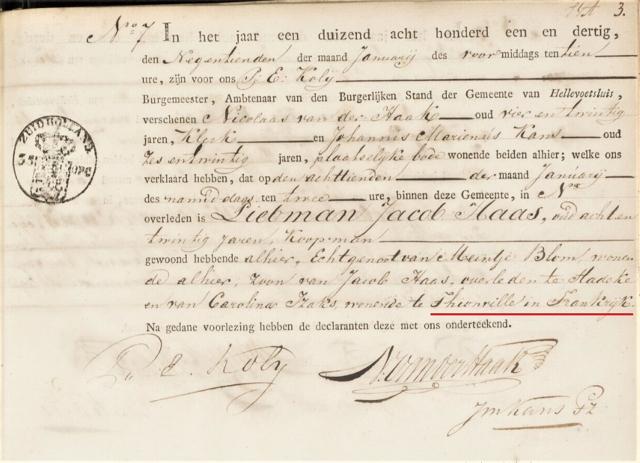 Nro 7 In het jaar een duizend acht honderd een en dertig, 3.
den Negentienden der maand Januarij des voor middags ten tien
ure, zijn voor ons P. E. Kolij
Burgemeester, Ambtenaar van den Burgerlijken Stand der Gemeente van Hellevoetsluis,
verschenen Nicolaas van der Haak oud vier en twintig
jaren, Klerk en Johannis Marienus Kans oud
Zes en twintig jaren, plaatselijke bode wonende beiden alhier; welke ons
verklaard hebben, dat op den achttienden der maand Januarij
des namiddags ten twee ure, binnen deze Gemeente, in No
overleden is Liebman Jacob Haas, oud acht en
twintig Jaren, Koopman
gewoond hebbende alhier, Echtgenoot van Meintje Blom wonen
de alhier, zoon van Jacob Haas, overleden te
en van Carolina Izaks, wonende te Thionville in Frankrijk.
Na gedane voorlezing hebben de declaranten deze met ons onderteekend.
P. E. Kolij N. van der Haak
JM Kans Pz
ZUID HOLLAND